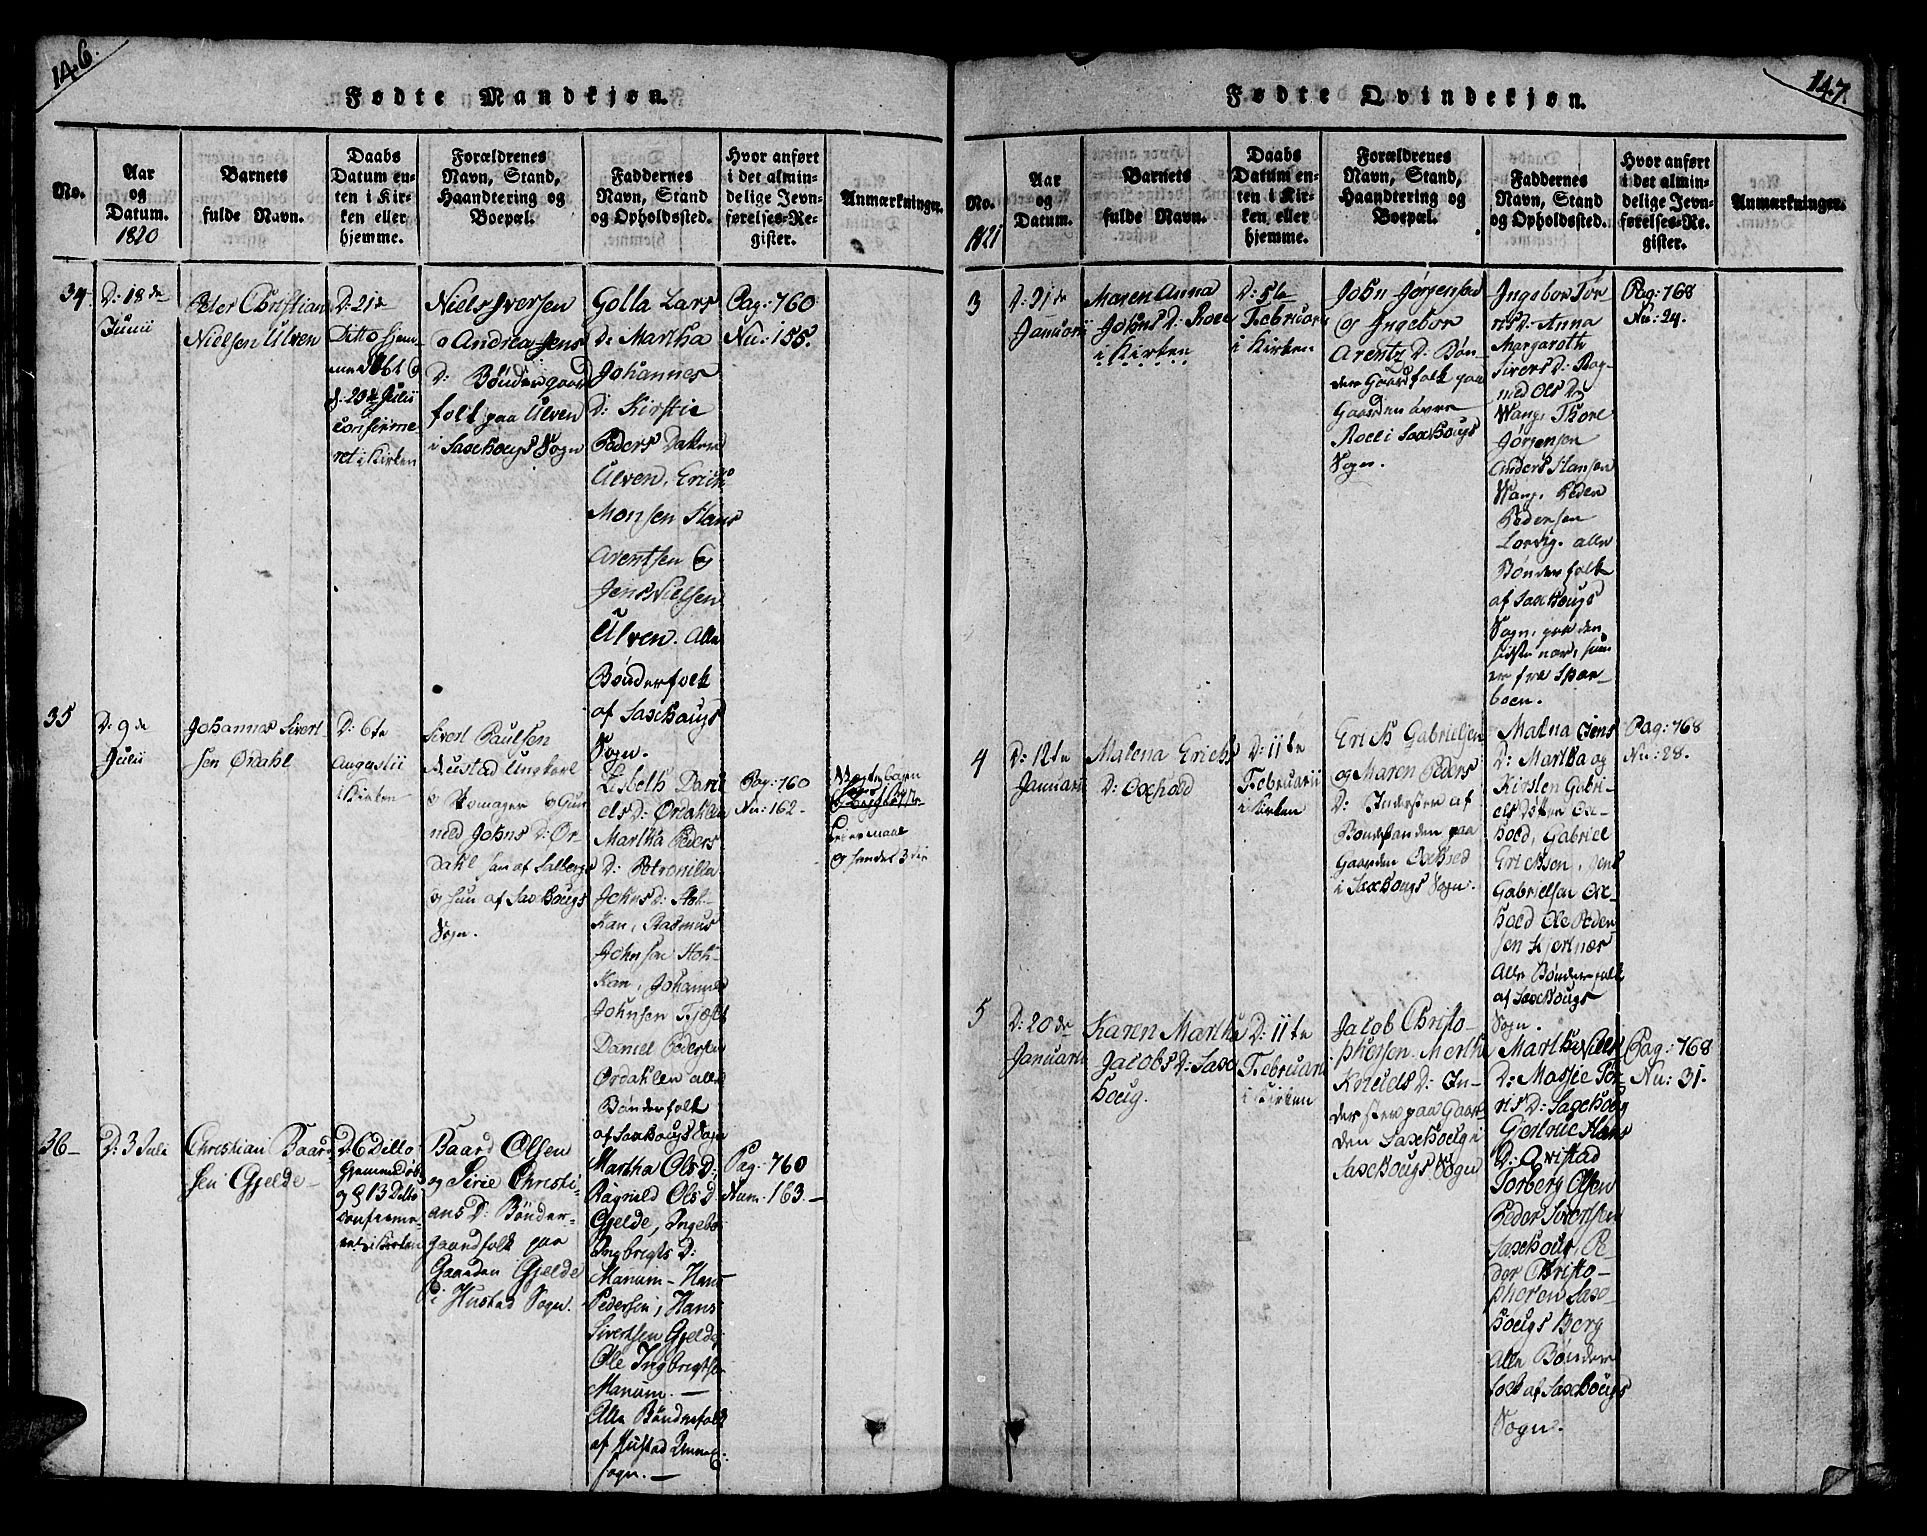 146.
Fødte Mandkjøn.
No.
Aar
og
Datum.
1820
Barnets
fulde Navn.
Daabs
Datum en-
ten i Kir-
ken eller
hjemme.
Forældrenes
Navn, Stand,
Haandtering og
Boepæl.
Faddernes
Navn, Stand
og Opholdssted.
Hvor anført
i det almin-
delige Jevn-
førelses-Re-
gister.
Anmærkninger.
34.
D: 18de
Junii
Peter Christian
Nielsen Ulven
D: 21de
Ditto hjem-
medøbt og
d. 23de Julii
confirme
ret i Kirken
Niels Iversen
o Andrea Jens
D: Bøndergaard
folk paa Ulven
i Saxhougs Sogn
Golla Lars
D: Martha
Johannes
D: Kirstie
Peders Datter
Ulven, Erich
Monsen Hans
Arentsen og
Jens Nielsen
Ulven. Alle
Bønderfolk
af Saxhougs
Sogn.
Pag: 760
Nu: 155.
35
D: 9de
Julii
Johannes Sivert
sen Ørdahl
D: 6te
Augustii
i Kirken
Sivert Paulsen
Austad Ungkarl
og Skomager og Gun
ned Johns D: Ør-
dahl han af Salbergs
og hun af Saxhougs
Sogn.
Lisbeth Dani
els D: Ørdahlen
Martha Peders
D: Petronilla
Johns D: Hol-
kan, Rasmus
Johnsen Hol-
kan, Johannes
Johnsen
Daniel Pedersen
Ørdahlen alle
Bønderfolk
af Saxhougs Sogn
Pag: 760
Nu: 162-
Uægte barn
36-
D: 3 Juli
Christian Baard
sen Gjelde-
D: 6 Ditto
hjemmedøbt
og d 13 Ditto
confirme-
ret i Kirken
Baard Olsen
og Sirie Christi-
ans D: Bønder-
gaardfolk paa
Gaarden Gjelde
i Hustad Sogn.
Martha Ols D:
Ragnild Ols D:
Gjelde, Ingebor
Ingbrigts D:
Manum- Hans
Pedersen, Hans
Sivertsen Gjelde
Ole Ingbrigtsen
Manum.-
Alle Bønderfolk
af Hustad
Sogn.-
Pag: 760
Num: 163.-
147.
Fødte Qvindekjøn.
No.
1821
Aar
og
Datum.
Barnets
fulde Navn.
Daabs
Datum en-
ten i Kir-
ken eller
hjemme.
Forældrenes
Navn, Stand,
Haandtering og
Boepæl.
Faddernes
Navn, Stand
og Opholdssted.
Hvor anført
i det almin-
delige Jevn-
førelses-Re-
gister.
Anmærkninger.
3
D: 21de
Januarii
Maren Anna
Johns D: Roel
i Kirken
D: 5te
Februarii
i Kirken
John Jørgensen
og Ingebor
Arentz D: Bøn-
der Gaardfolk paa
Gaarden øvre
Roel i Saxhougs
Sogn.
Ingebor Tor
ris D: Anna
Margareth
Sivers D: Rag-
ned Ols D:
Wang, Thore
Jørgensen
Anders Hansen
Wang, Peder
Pedersen
alle
Bønderfolk
af Saxhougs
Sogn,
Pag: 768
Nu: 24.
4
D: 12te
Januarii
Malena Erichs
D: Oxhoed
D: 11te
Februarii
i Kirken
Erich Gabrielsen
og Maren Peders
D: Indersten af
Bondestanden paa
Gaarden Oxhoed
i Saxhougs Sogn.
Malna Jens
D: Martha og
Kirsten Gabri-
els Døtter Ox-
hoed, Gabriel
Erichsen, Jens
Gabrielsen Ox-
hoed Ole Peder-
sen
Alle Bønderfolk
af Saxhougs
Sogn.
Pag: 768
Nu: 28.
5
D: 20de
Januarii
Karen Martha
Jacobs D: Saxe
houg.
D: 11te
Februarii
i Kirken
Jacob Christo-
phersen Martha
Knuds D: In-
dersten paa Gaar
den Saxehoug i
Saxehougs Sogn
Martha Niels
D: Masjie Tor-
ris D: Saxehoug
Gertrue Hans
D: Qvistad
Torberg Olsen
Peder Sivertsen
Saxehoug, Pe-
der Christo-
phersen Saxe-
hougs Berg
Alle Bønder
folk af Saxhougs
Sogn.
Pag: 768
Nu: 31.